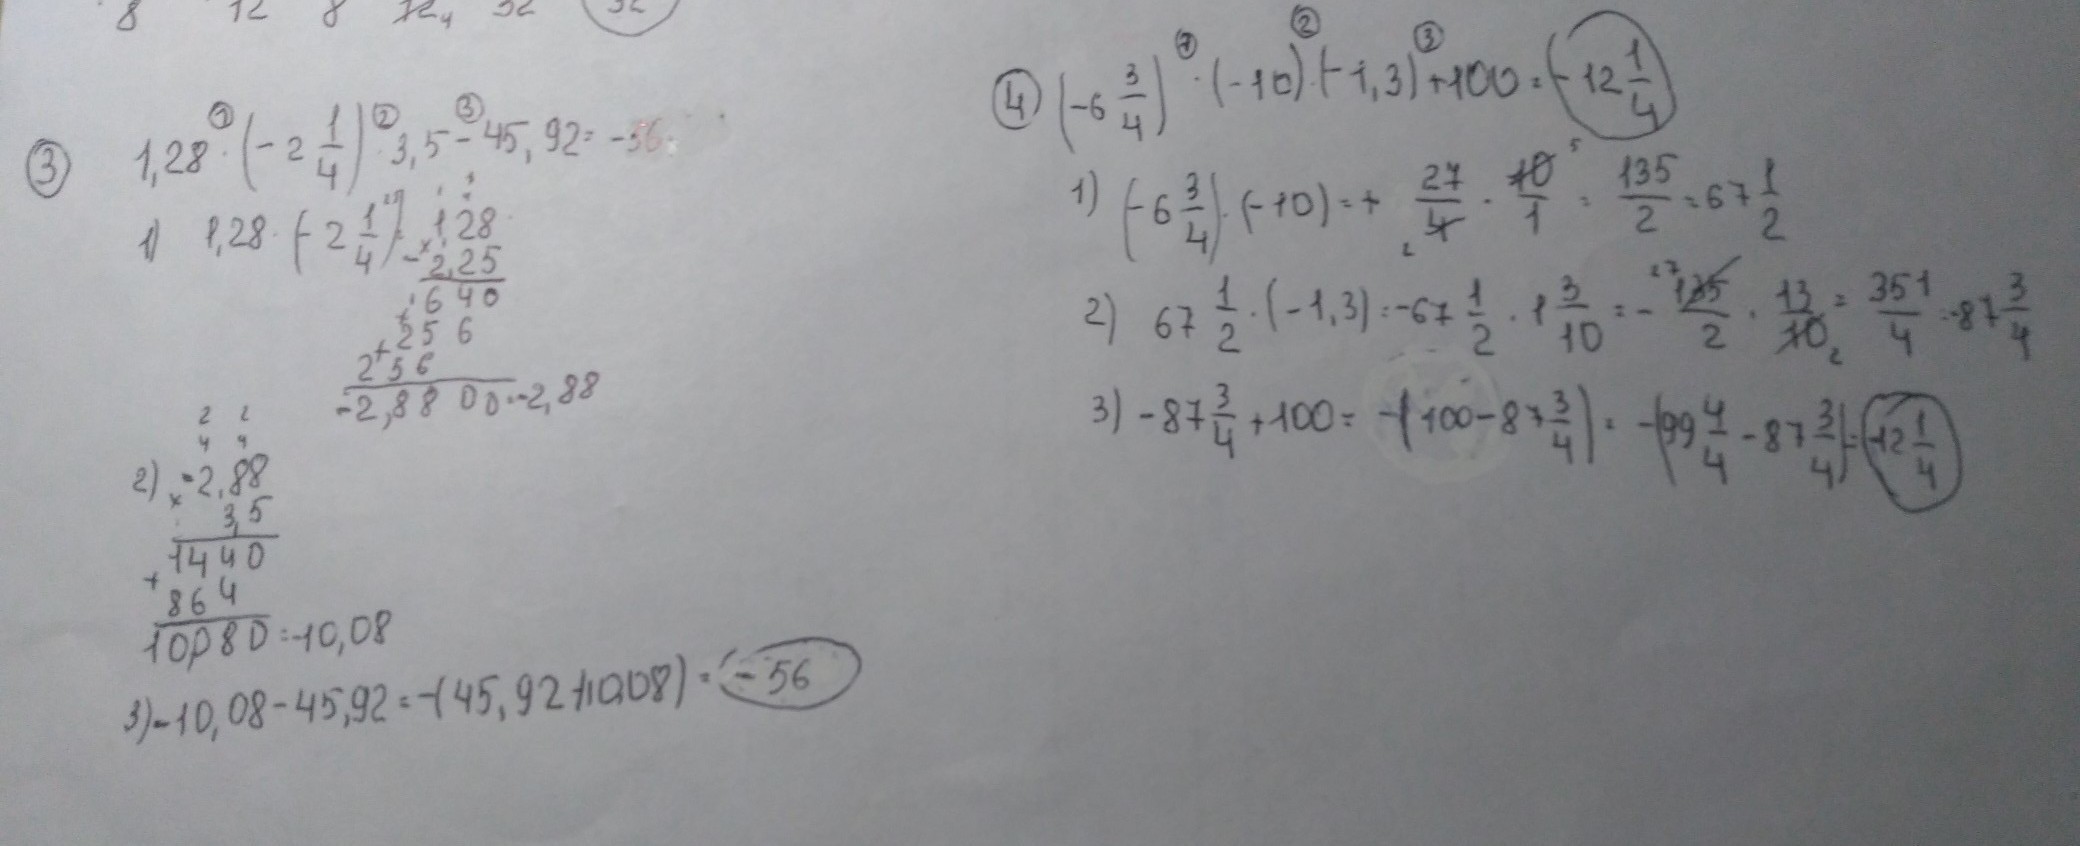 8 12 8 32 32
③ 1,28 · (-2 1/4) · 3,5 - 45,92 = -56
① ② ③
1) 1,28 · (-2 1/4) = 1,28
- × 2,25
640
+ 256
+ 256
-2,8800 = -2,88
2 2
4 4
2) × -2,88
3,5
1440
+ 864
10,080 = -10,08
3) -10,08 - 45,92 = -(45,92 + 10,08) = -56
① ② ③
④ (-6 3/4) · (-10) · (-1,3) + 100 = -12 1/4
1) (-6 3/4) · (-10) = + 27/4 2 · 10/1 5 = 135/2 = 67 1/2
2) 67 1/2 · (-1,3) = -67 1/2 · 1 3/10 = - 27 135/2 · 13/10 2 = 351/4 = -87 3/4
3) -87 3/4 + 100 = -(100 - 87 3/4) = -(99 4/4 - 87 3/4) = -12 1/4